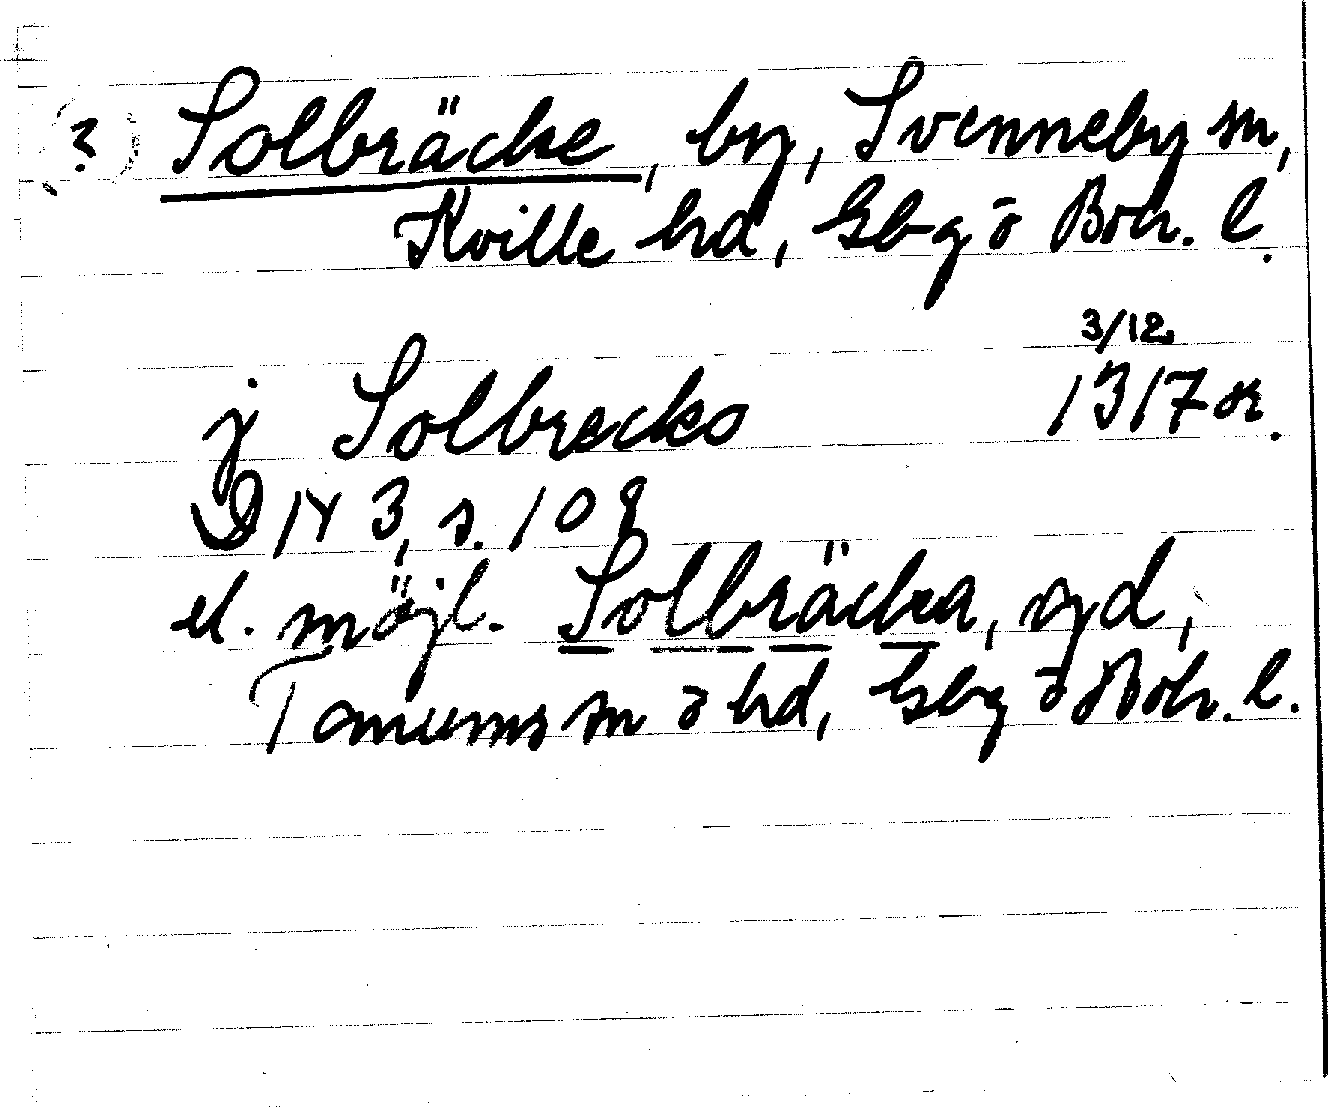 (?) Solbräcke, by, Svenneby sn,
Kville hd, Gbg o Boh. l.
3/12
j Solbrecko 1317 or.
DN 3, s. 109
el. möjl. Solbräcka, gd,
Tanums sn o hd, Gbg o Boh. l.